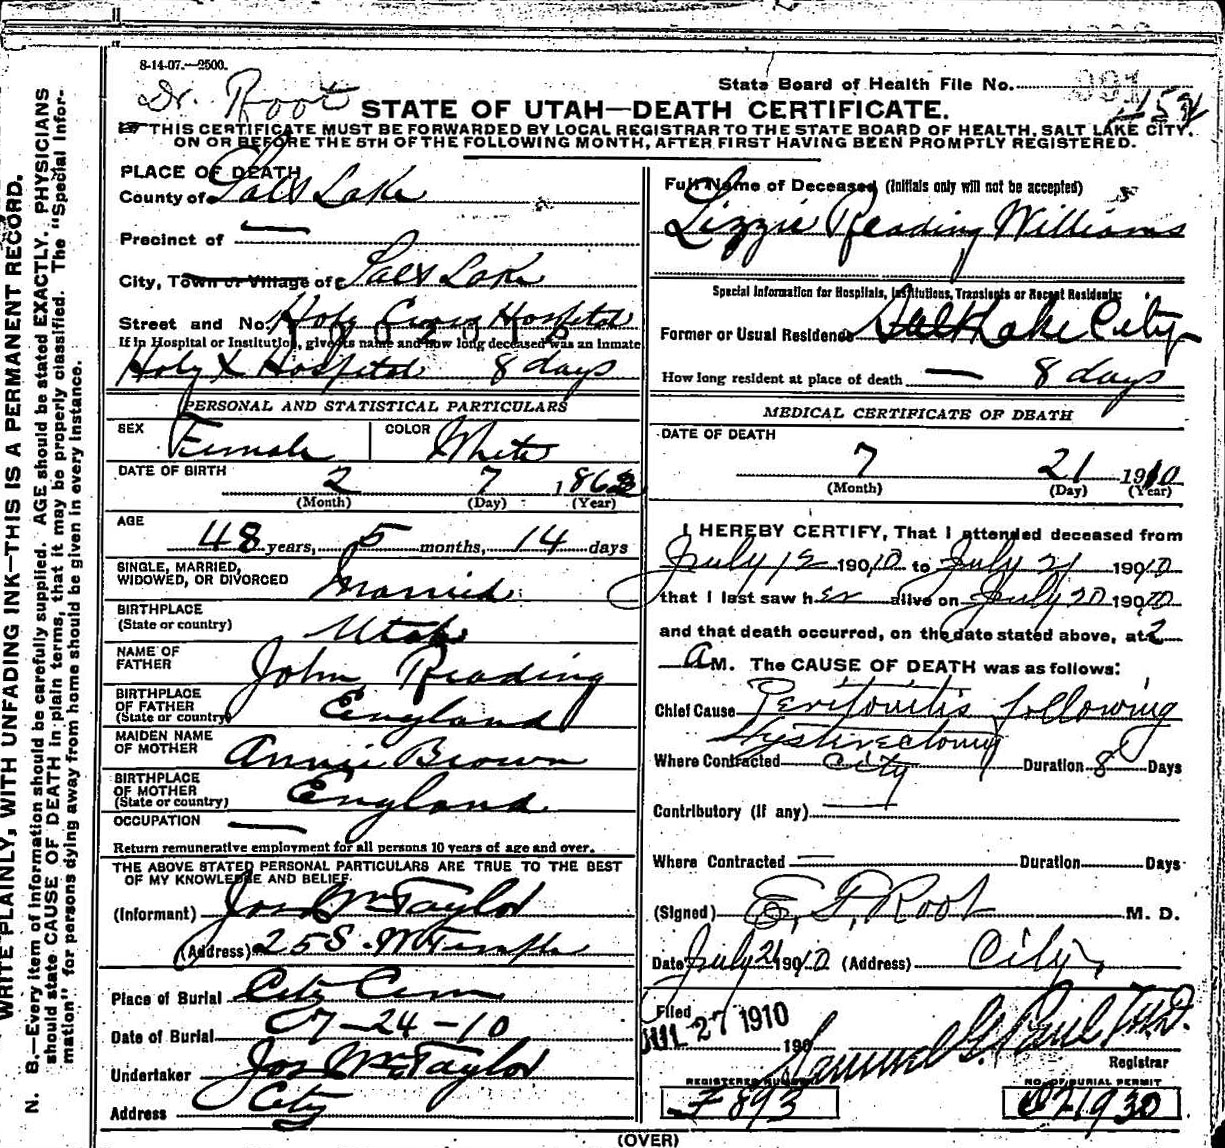 8-14-07.—2500.
Dr. Root
State Board of Health File No.
STATE OF UTAH—DEATH CERTIFICATE.
THIS CERTIFICATE MUST BE FORWARDED BY LOCAL REGISTRAR TO THE STATE BOARD OF HEALTH, SALT LAKE CITY,
ON OR BEFORE THE 5TH OF THE FOLLOWING MONTH, AFTER FIRST HAVING BEEN PROMPTLY REGISTERED.
WRITE PLAINLY, WITH UNFADING INK—THIS IS A PERMANENT RECORD.
N. B.—Every item of information should be carefully supplied. AGE should be stated EXACTLY. PHYSICIANS
should state CAUSE OF DEATH in plain terms, that it may be properly classified. The "Special Infor-
mation" for persons dying away from home should be given in every instance.
PLACE OF DEATH
County of Salt Lake
Precinct of —
City, Town or Village of Salt Lake
Street and No. Holy Cross Hospital
If in Hospital or Institution, give its name and how long deceased was an inmate
Holy X Hospital 8 days
PERSONAL AND STATISTICAL PARTICULARS
SEX Female COLOR White
DATE OF BIRTH 2 7 186
(Month) (Day) (Year)
AGE 48 years, 5 months, 14 days
SINGLE, MARRIED,
WIDOWED, OR DIVORCED Married
BIRTHPLACE
(State or country) Utah
NAME OF
FATHER John Reading
BIRTHPLACE
OF FATHER
(State or country) England
MAIDEN NAME
OF MOTHER Annie Brown
BIRTHPLACE
OF MOTHER
(State or country) England
OCCUPATION —
Return remunerative employment for all persons 10 years of age and over.
THE ABOVE STATED PERSONAL PARTICULARS ARE TRUE TO THE BEST
OF MY KNOWLEDGE AND BELIEF.
(Informant) Jos Wm Taylor
(Address) 25 S. W Temple
Place of Burial City Cem
Date of Burial 07-24-10
Undertaker Jos Wm Taylor
Address City
Full Name of Deceased (Initials only will not be accepted)
Lizzie Reading Williams
Special Information for Hospitals, Institutions, Transients or Recent Residents:
Former or Usual Residence Salt Lake City
How long resident at place of death — 8 days
MEDICAL CERTIFICATE OF DEATH
DATE OF DEATH
7 21 1910
(Month) (Day) (Year)
I HEREBY CERTIFY, That I attended deceased from
July 12 19010 to July 21 19010
that I last saw her alive on July 20 19010
and that death occurred, on the date stated above, at 2
A M. The CAUSE OF DEATH was as follows:
Chief Cause Peritonitis following
Hysterectomy
Where Contracted City Duration 8 Days
Contributory (If any) —
Where Contracted — Duration Days
(Signed) E. F. Root M. D.
Date July 21 19010 (Address) City
Filed
JUL 27 1910 190
Samuel G. Paul
Registrar
REGISTERED NUMBER NO. OF BURIAL PERMIT
F 893
(OVER)